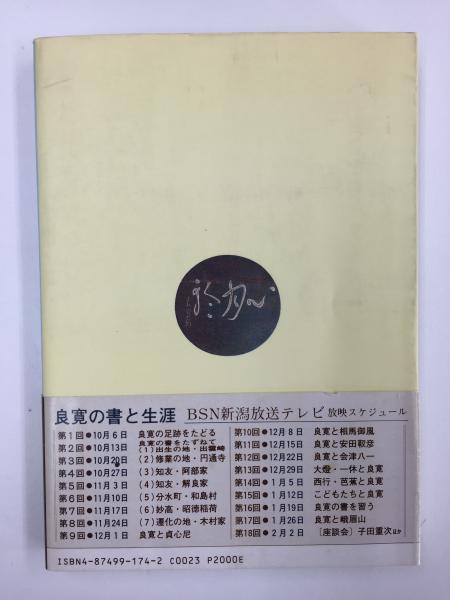 心月輪
良寛の書と生涯 BSN新潟放送テレビ 放映スケジュール
第1回●10月6日 良寛の足跡をたどる
良寛の書をたずねて
第2回●10月13日 (1)出生の地・出雲崎
第3回●10月20日 (2)修業の地・円通寺
第4回●10月27日 (3)知友・阿部家
第5回●11月3日 (4)知友・解良家
第6回●11月10日 (5)分水町・和島村
第7回●11月17日 (6)妙高・昭徳稲荷
第8回●11月24日 (7)遷化の地・木村家
第9回●12月1日 良寛と貞心尼
第10回●12月8日 良寛と相馬御風
第11回●12月15日 良寛と安田靫彦
第12回●12月22日 良寛と会津八一
第13回●12月29日 大燈・一休と良寛
第14回●1月5日 西行・芭蕉と良寛
第15回●1月12日 こどもたちと良寛
第16回●1月19日 良寛の書を習う
第17回●1月26日 良寛と峨眉山
第18回●2月2日 〔座談会〕子田重次ほか
ISBN4-87499-174-2 C0023 P2000E